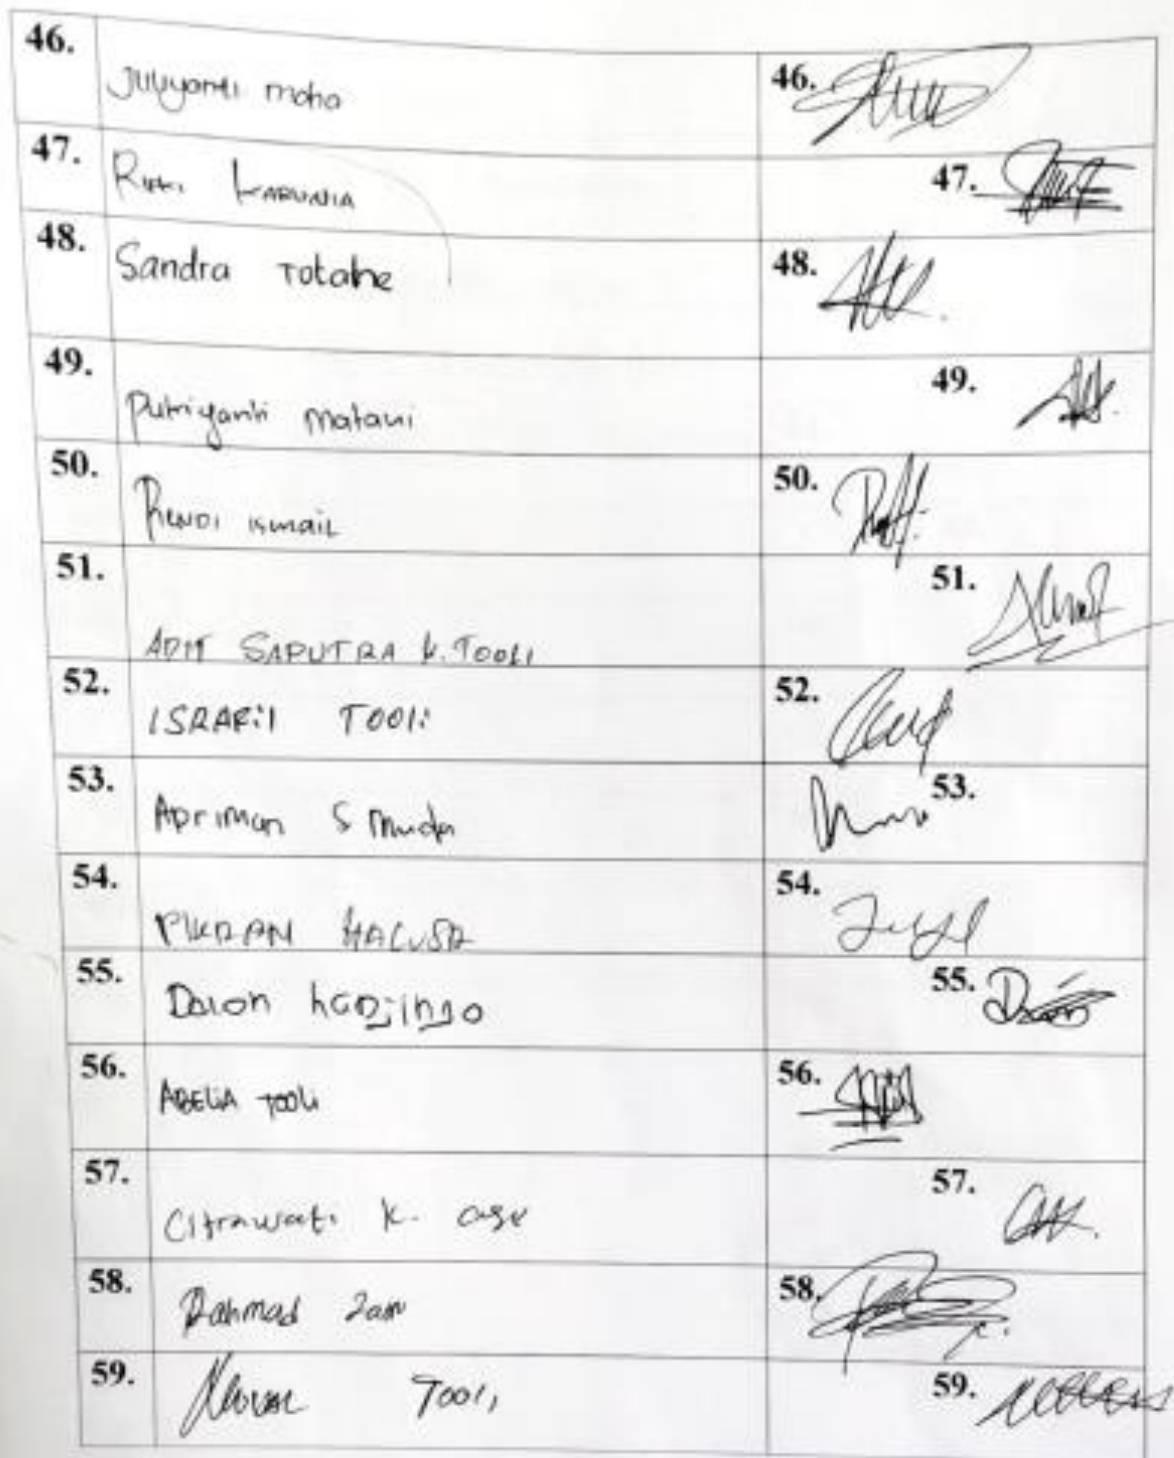 46. Juliyanti moha 46.
47. Rifki KARUNIA 47.
48. Sandra Totabe 48.
49. Putriyanti Matani 49.
50. RENDI ISMAIL 50.
51. ADIT SAPUTRA K. TOOLI 51.
52. ISRAFil TOOli 52.
53. Apriman S Muda 53.
54. PIKRAN HALUSA 54.
55. 55.
56. ABELIA TOOLi 56.
57. Citrawati K. 57.
58. Rahmad Jain 58.
59. NOUVAL TOOLi 59.